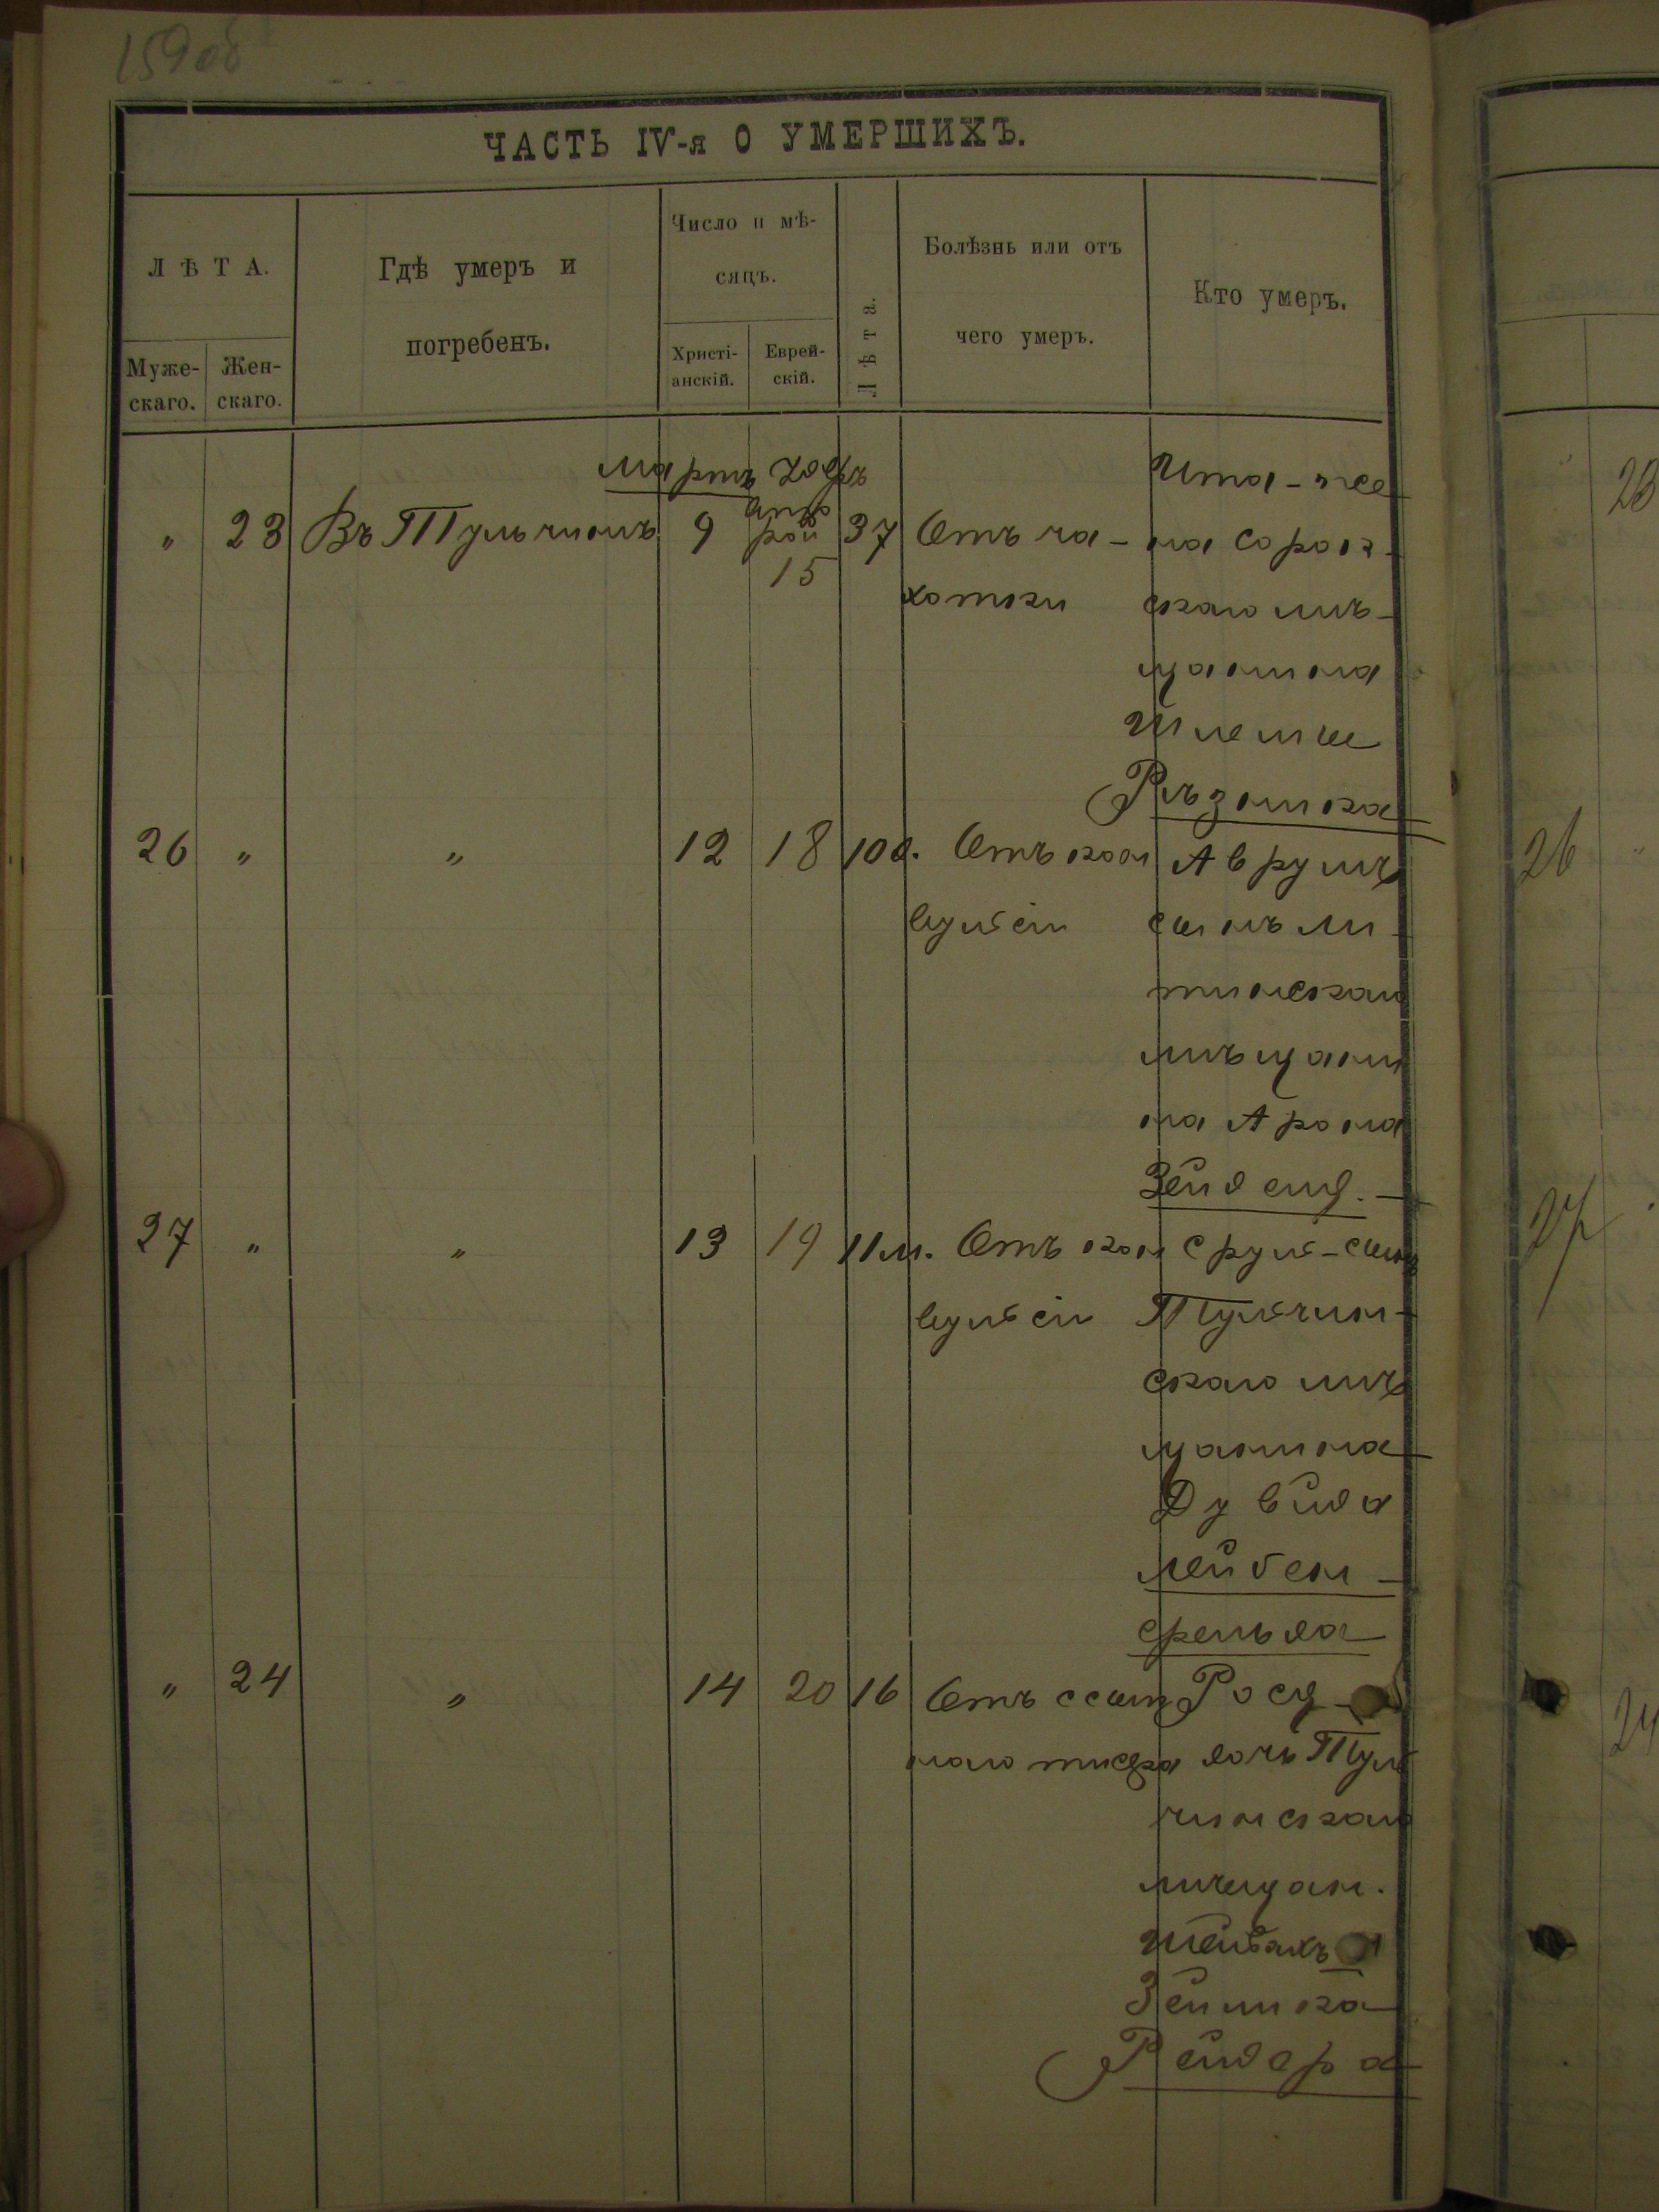 159 об
ЧАСТЬ IV-я О УМЕРШИХЪ.
ЛѢТА.
Муже-
скаго.
Жен-
скаго.
Гдѣ умеръ и
погребенъ.
Число и мѣ-
сяцъ.
Христі-
анскій.
Еврей-
скій.
Лѣта.
Болѣзнь или отъ
чего умеръ.
Кто умеръ.
Мартъ
" 23 Въ Тульчинъ 9 15 37 Отъ ча-
хотки
Ита-же
на Сорок-
скаго мѣ-
щанина
Шлемы
Рѣзника
26 " " 12 18 10 д. Отъ кон
вульсіи
Аврумъ
сынъ ли
тинскаго
мѣщани
на Арона
27 " " 13 19 11 м. Отъ кон
вульсіи
Сруль-сынъ
Тульчин-
скаго мѣ
щанина
Дувида
Лейбен-
" 24 " 14 20 16 Отъ сып
наго тифа
Рося
дочь Туль
чинскаго
мѣщан.
Зейлика
Рейдера
23
26
27
24